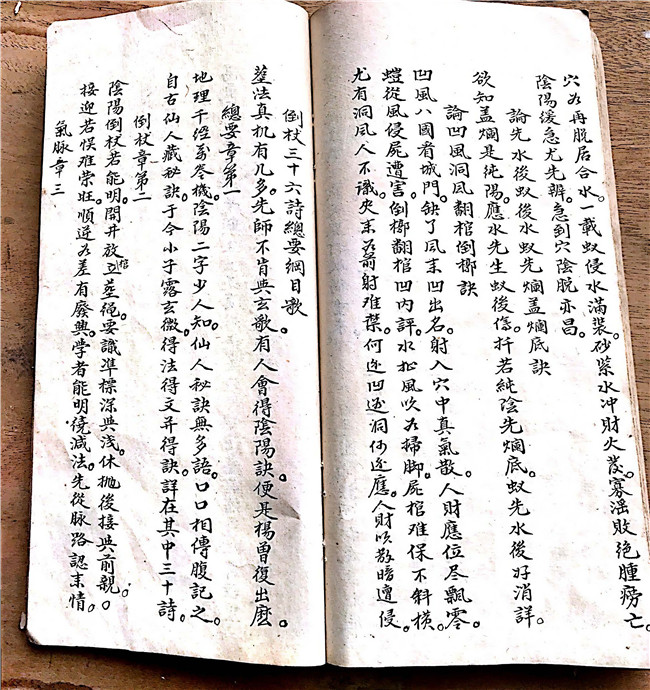 穴为再脱居合水。一载蚁侵水满装。砂紧水冲财火发。寡滛敗绝腫痨亡。
陰陽缓急尤先辨。急到穴陰脱亦昌。
論先水後蚁後水蚁先爛盖爛底訣
欲知盖爛是纯陽。應水先生蚁後傷。扦若純陰先爛底。蚁先水後好消詳。
論凹風洞風翻棺倒槨訣
凹風八國看城門。缺了風来凹出名。射入穴中真氣散。人財應位尽飄零。
螘從風侵屍遭害。倒槨翻棺凹内評。水扯風吹为掃脚。屍棺难保不斜横。
尤有洞風人不識。夹来为箭射难禁。何迩凹逐洞何迩應。人財吹散暗遭侵。
倒杖三十六詩總要綱目歌
塟法真机有几多。先師不肯與玄歌。有人會得陰陽訣。便是楊曾復出庅。
總要章第一
地理千經萬卷機。陰陽二字少人知。仙人秘訣無多語。口口相傳腹記之。
自古仙人藏秘訣。于今小子露玄微。得法得文并得訣。詳在其中三十詩。
倒杖章第二
陰陽倒杖若能明。開井放棺立塟绳。要識準標深與浅。休拋後接與前親。
接迎若悮难荣旺。順逆为差有廢興。学者能明徺减法。先從脉路認来情。
氣脉章三